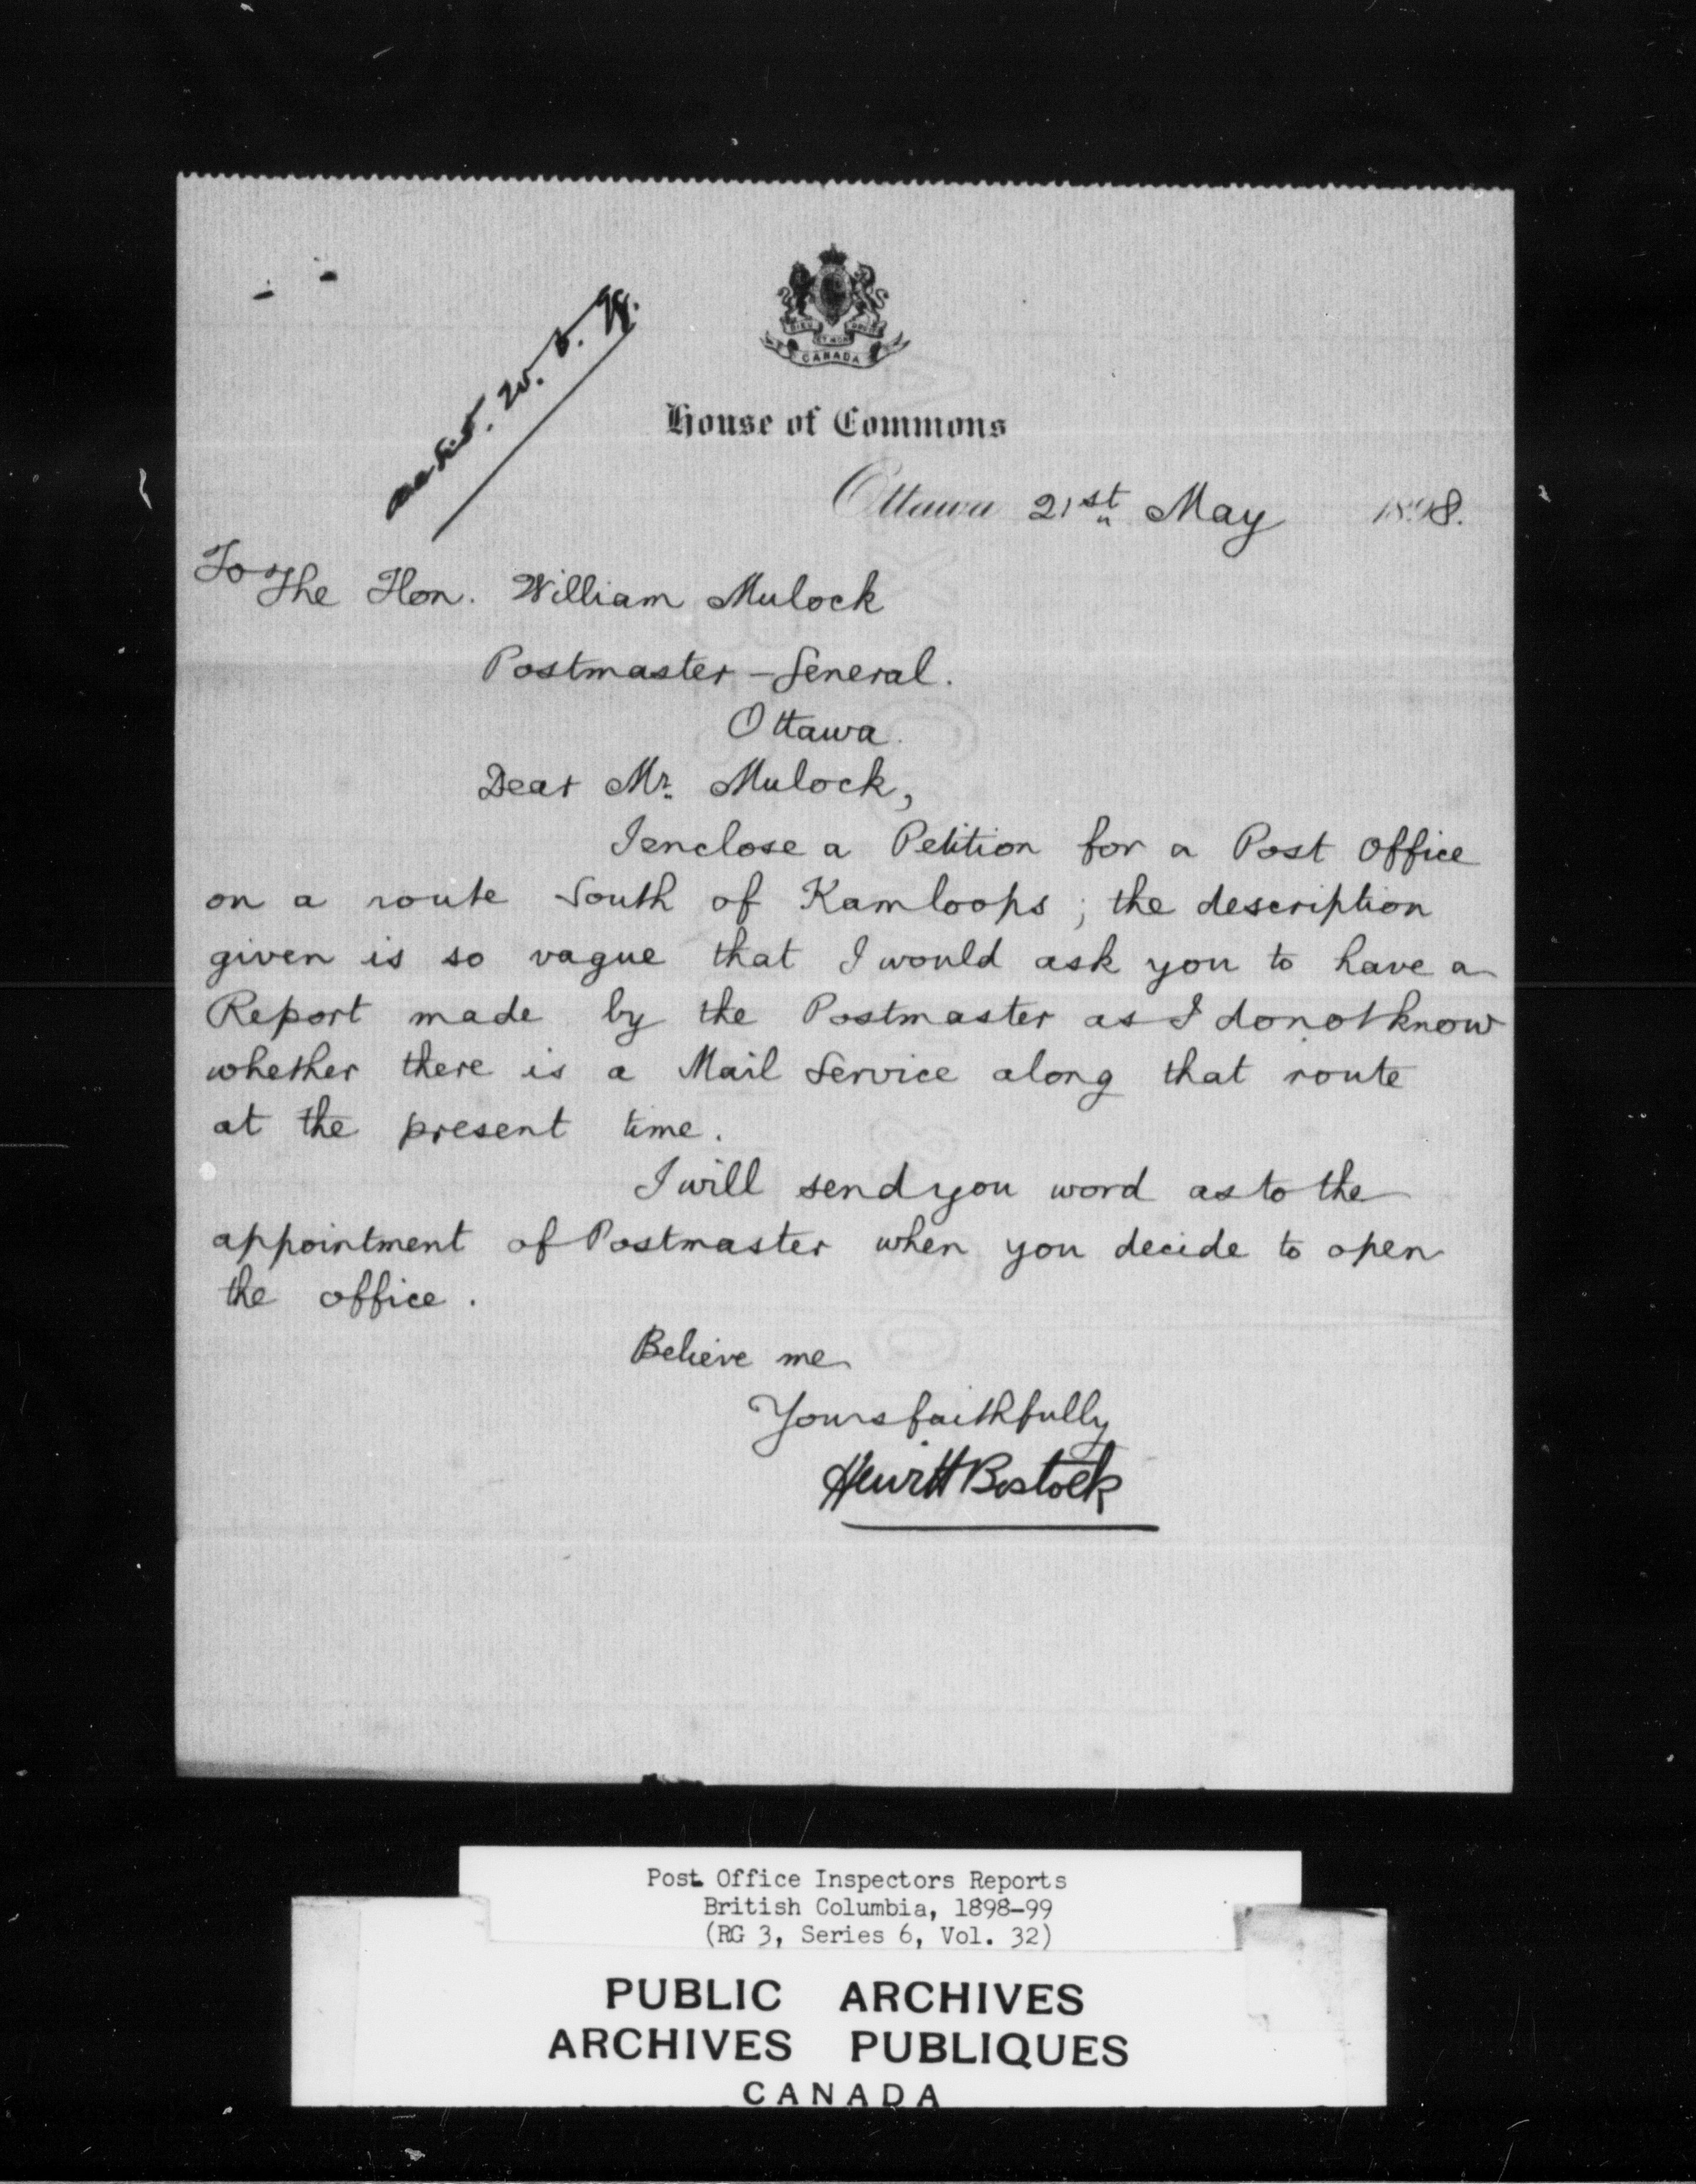 CANADA
House of Commons
Ottawa 21st May 1898.
To The Hon. William Mulock
Postmaster-General.
Ottawa.
Dear Mr. Mulock,
I enclose a Petition for a Post Office
on a route South of Kamloops; the description
given is so vague that I would ask you to have a
Report made by the Postmaster as I do not know
whether there is a Mail Service along that route
at the present time.
I will send you word as to the
appointment of Postmaster when you decide to open
the office.
Believe me
Yours faithfully
Hewitt Bostock
Post Office Inspectors Reports
British Columbia, 1898-99
(RG 3, Series 6, Vol. 32)
PUBLIC ARCHIVES
ARCHIVES PUBLIQUES
CANADA